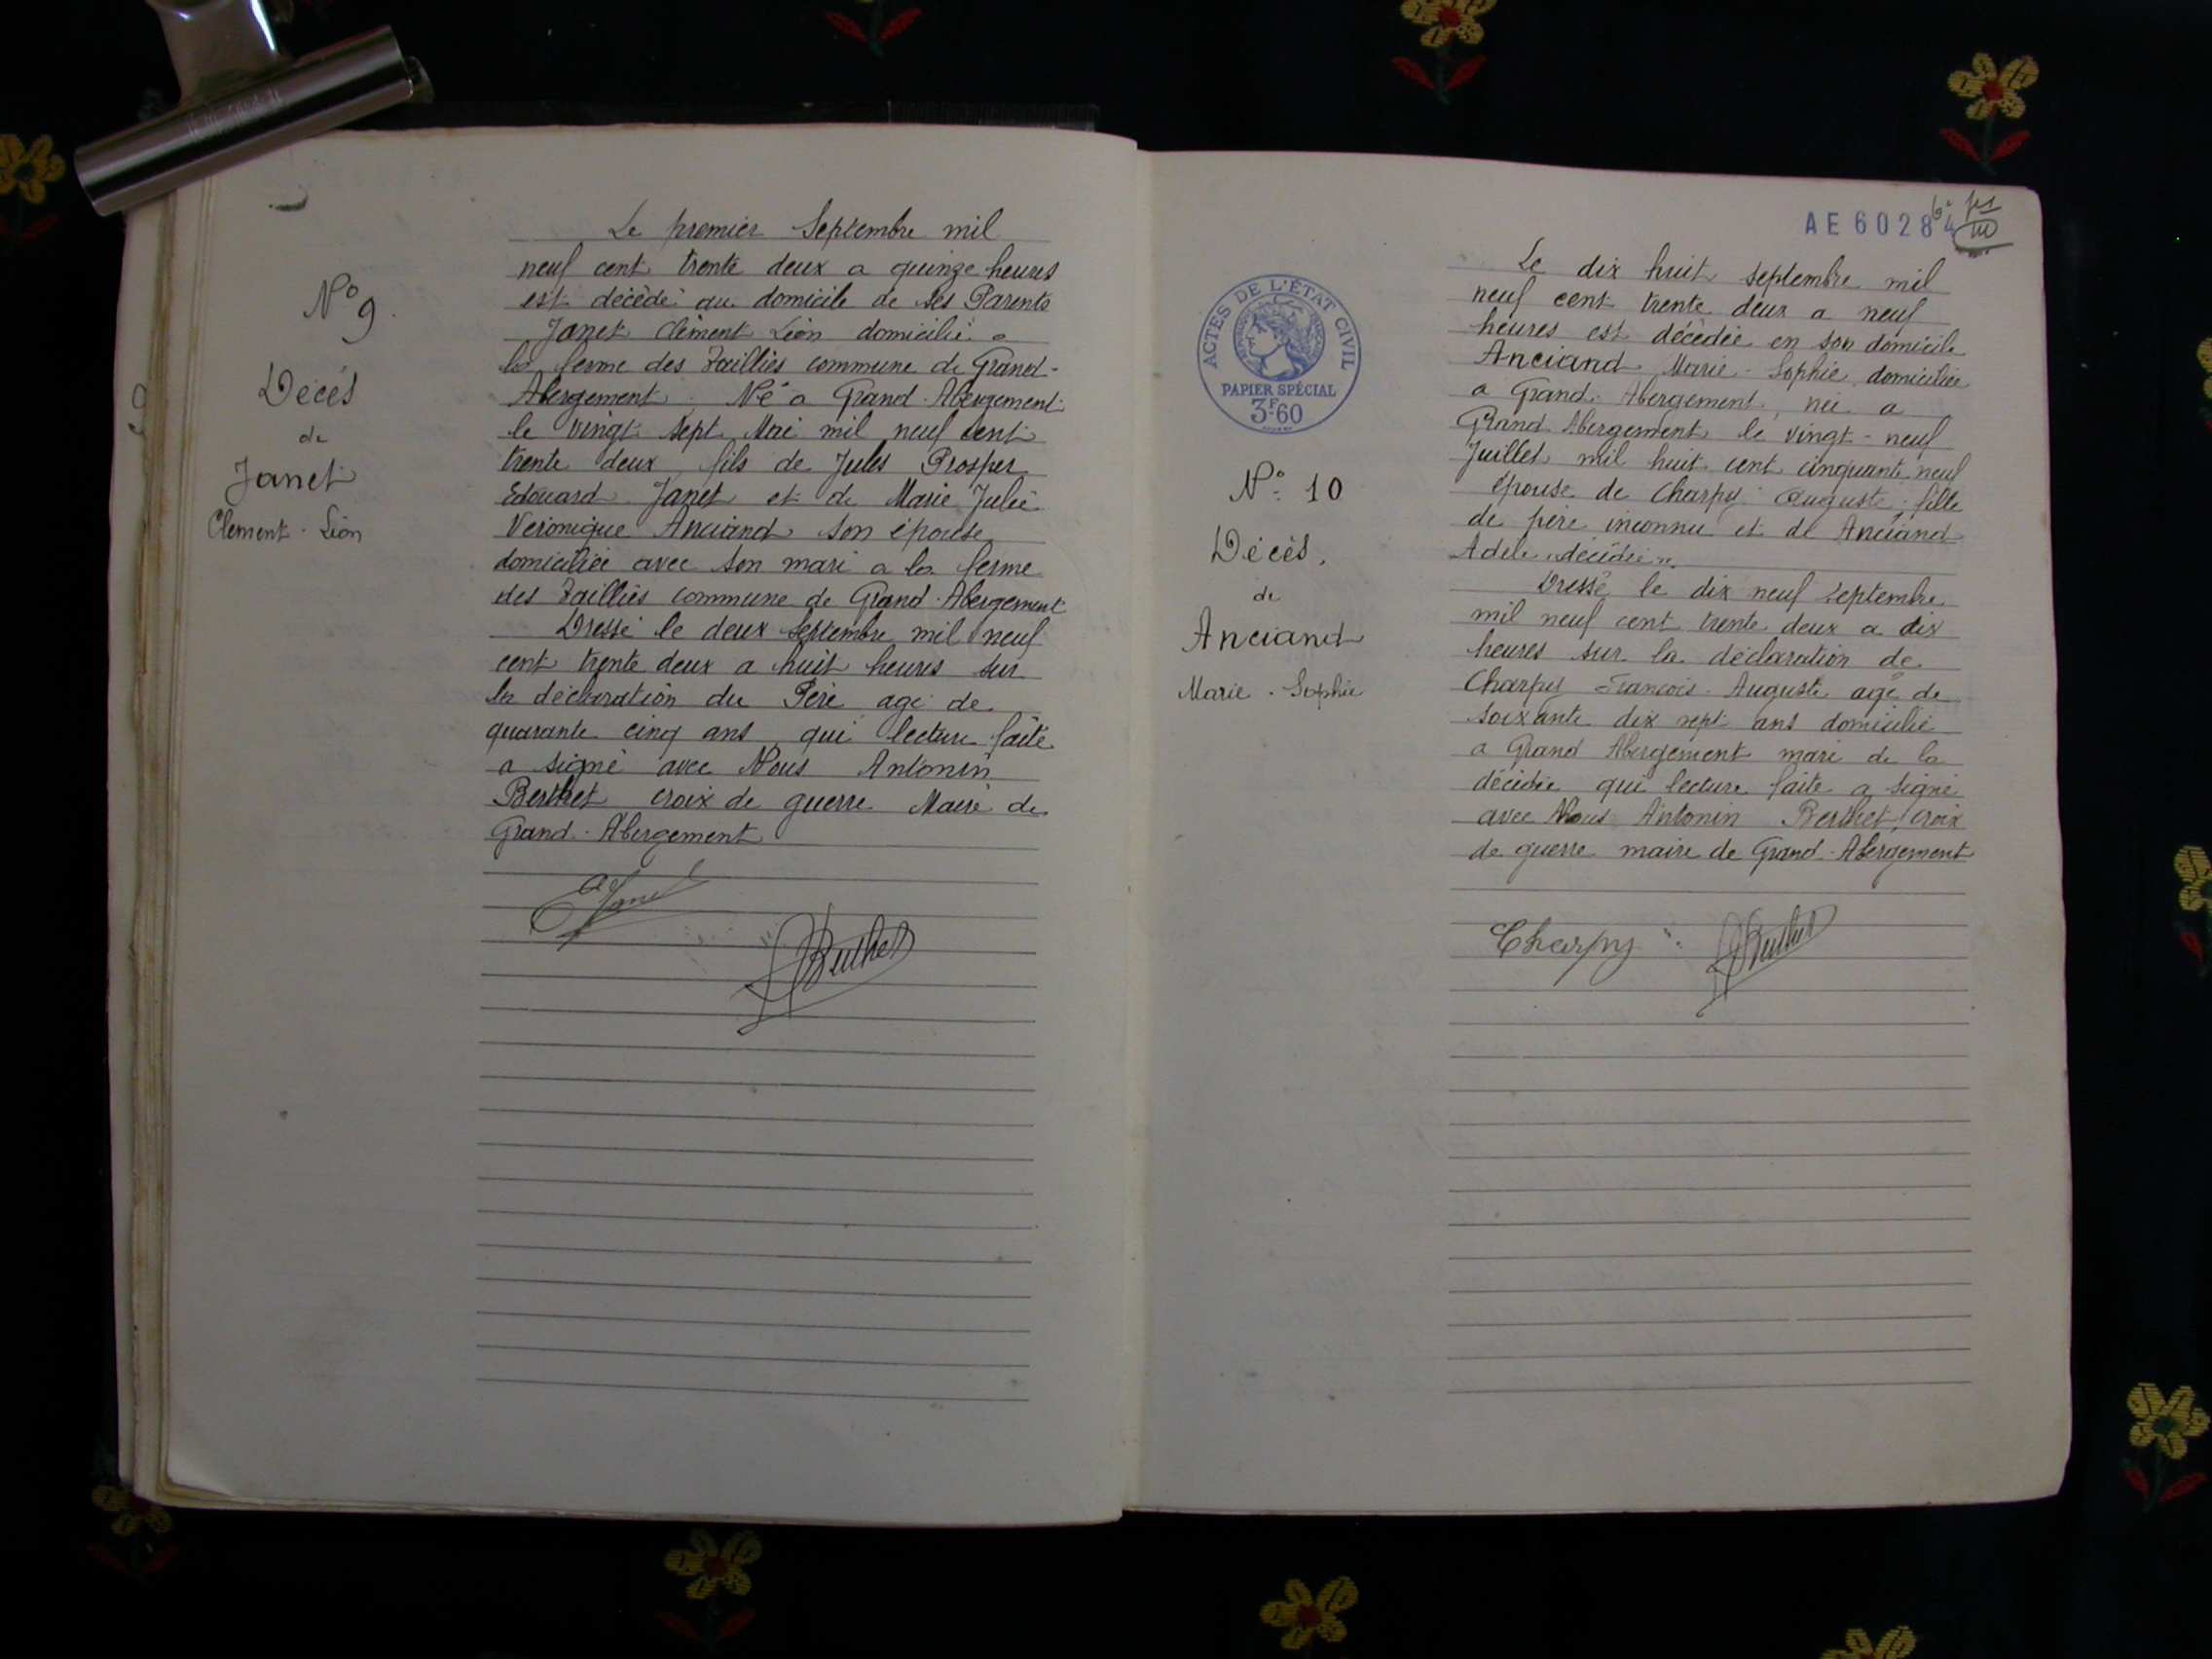 Le premier Septembre mil
neuf cent trente deux a quinze heures
est décédé au domicile de ses Parents
Janet Clément Léon domicilié a
la ferme des Tailliès commune de Grand-
Abergement. Né a Grand-Abergement
le vingt sept Mai mil neuf cent
trente deux, fils de Jules Prosper
Edouard Janet et de Marie Julie
Véronique Anciand son épouse
domiciliée avec son mari a la ferme
des Tailliès commune de Grand-Abergement
Dressé le deux septembre mil neuf
cent trente deux a huit heures sur
la déclaration du Père agé de
quarante cinq ans, qui lecture faite
a signé avec Nous Antonin
Berthet croix de guerre Maire de
Grand-Abergement
EJanet
Berthet
N° 9.
Décés
de
Janet
Clement-Léon
AE 60284
ACTES DE L'ÉTAT CIVIL
PAPIER SPÉCIAL
3F60
N° 10
Décès.
de
Anciand
Marie-Sophie
Le dix huit septembre mil
neuf cent trente deux a neuf
heures est décédée en son domicile
Anciand Marie-Sophie, domiciliée
a Grand Abergement, née a
Grand Abergement le vingt-neuf
Juillet mil huit cent cinquante neuf
épouse de Charpy Auguste, fille
de père inconnu et de Anciand
Adèle "décédée".
Dressé le dix neuf septembre
mil neuf cent trente deux a dix
heures sur la déclaration de
Charpy François-Auguste agé de
soixante dix sept ans domicilié
a Grand Abergement mari de la
décédée qui lecture faite a signé
avec Nous Antonin Berthet, croix
de guerre maire de Grand-Abergement
Charpy
Berthet